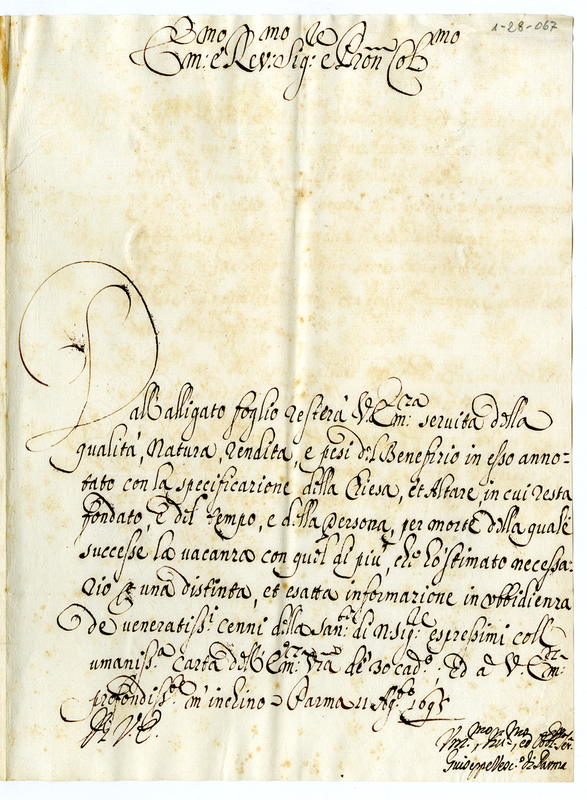 1-28-067
Em:mo e Rev:mo Sig:re e Pron Col:mo
Dall'alligato foglio resterà V. Em:za servita della
qualità, Natura, rendita, e pesi del Benefizio in esso anno=
tato con la specificazione della Chiesa, et Altare, in cui resta
fondato, e del tempo, e della persona, per morte della quale
successe la vacanza con quel di più, che hò stimato necessa=
rio per una distinta, et esatta informazione in ubbidienza
de veneratiss:i cenni della San:tà di N. Sig:re espressimi coll'
umaniss:a carta dell'Em:za Vra de' 30 cad:o, Ed à V. Em:za
profondiss:te m'inchino = Parma 11 Ag:to 1695
Di V. E.
Um:mo, ed Obb: ser:
Giuseppe Vesc:o di Parma